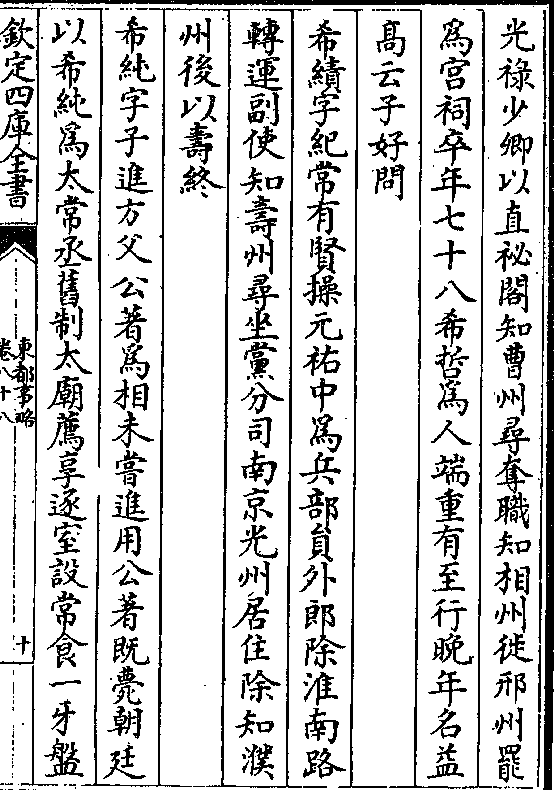 光祿少卿以直祕閣知曹州尋奪職知相州徙邢州罷
爲宫祠卒年七十八希哲爲人端重有至行晚年名益
髙云子好問
希績字紀常有賢操元祐中爲兵部員外郎除淮南路
轉運副使知壽州尋坐黨分司南京光州居住除知濮
州後以壽終
希純字子進方父公著爲相未嘗進用公著既薨朝廷
以希純爲太常丞舊制太廟薦享逐室設常食一牙盤
欽定四庫全書
東都事略
卷八十八
十